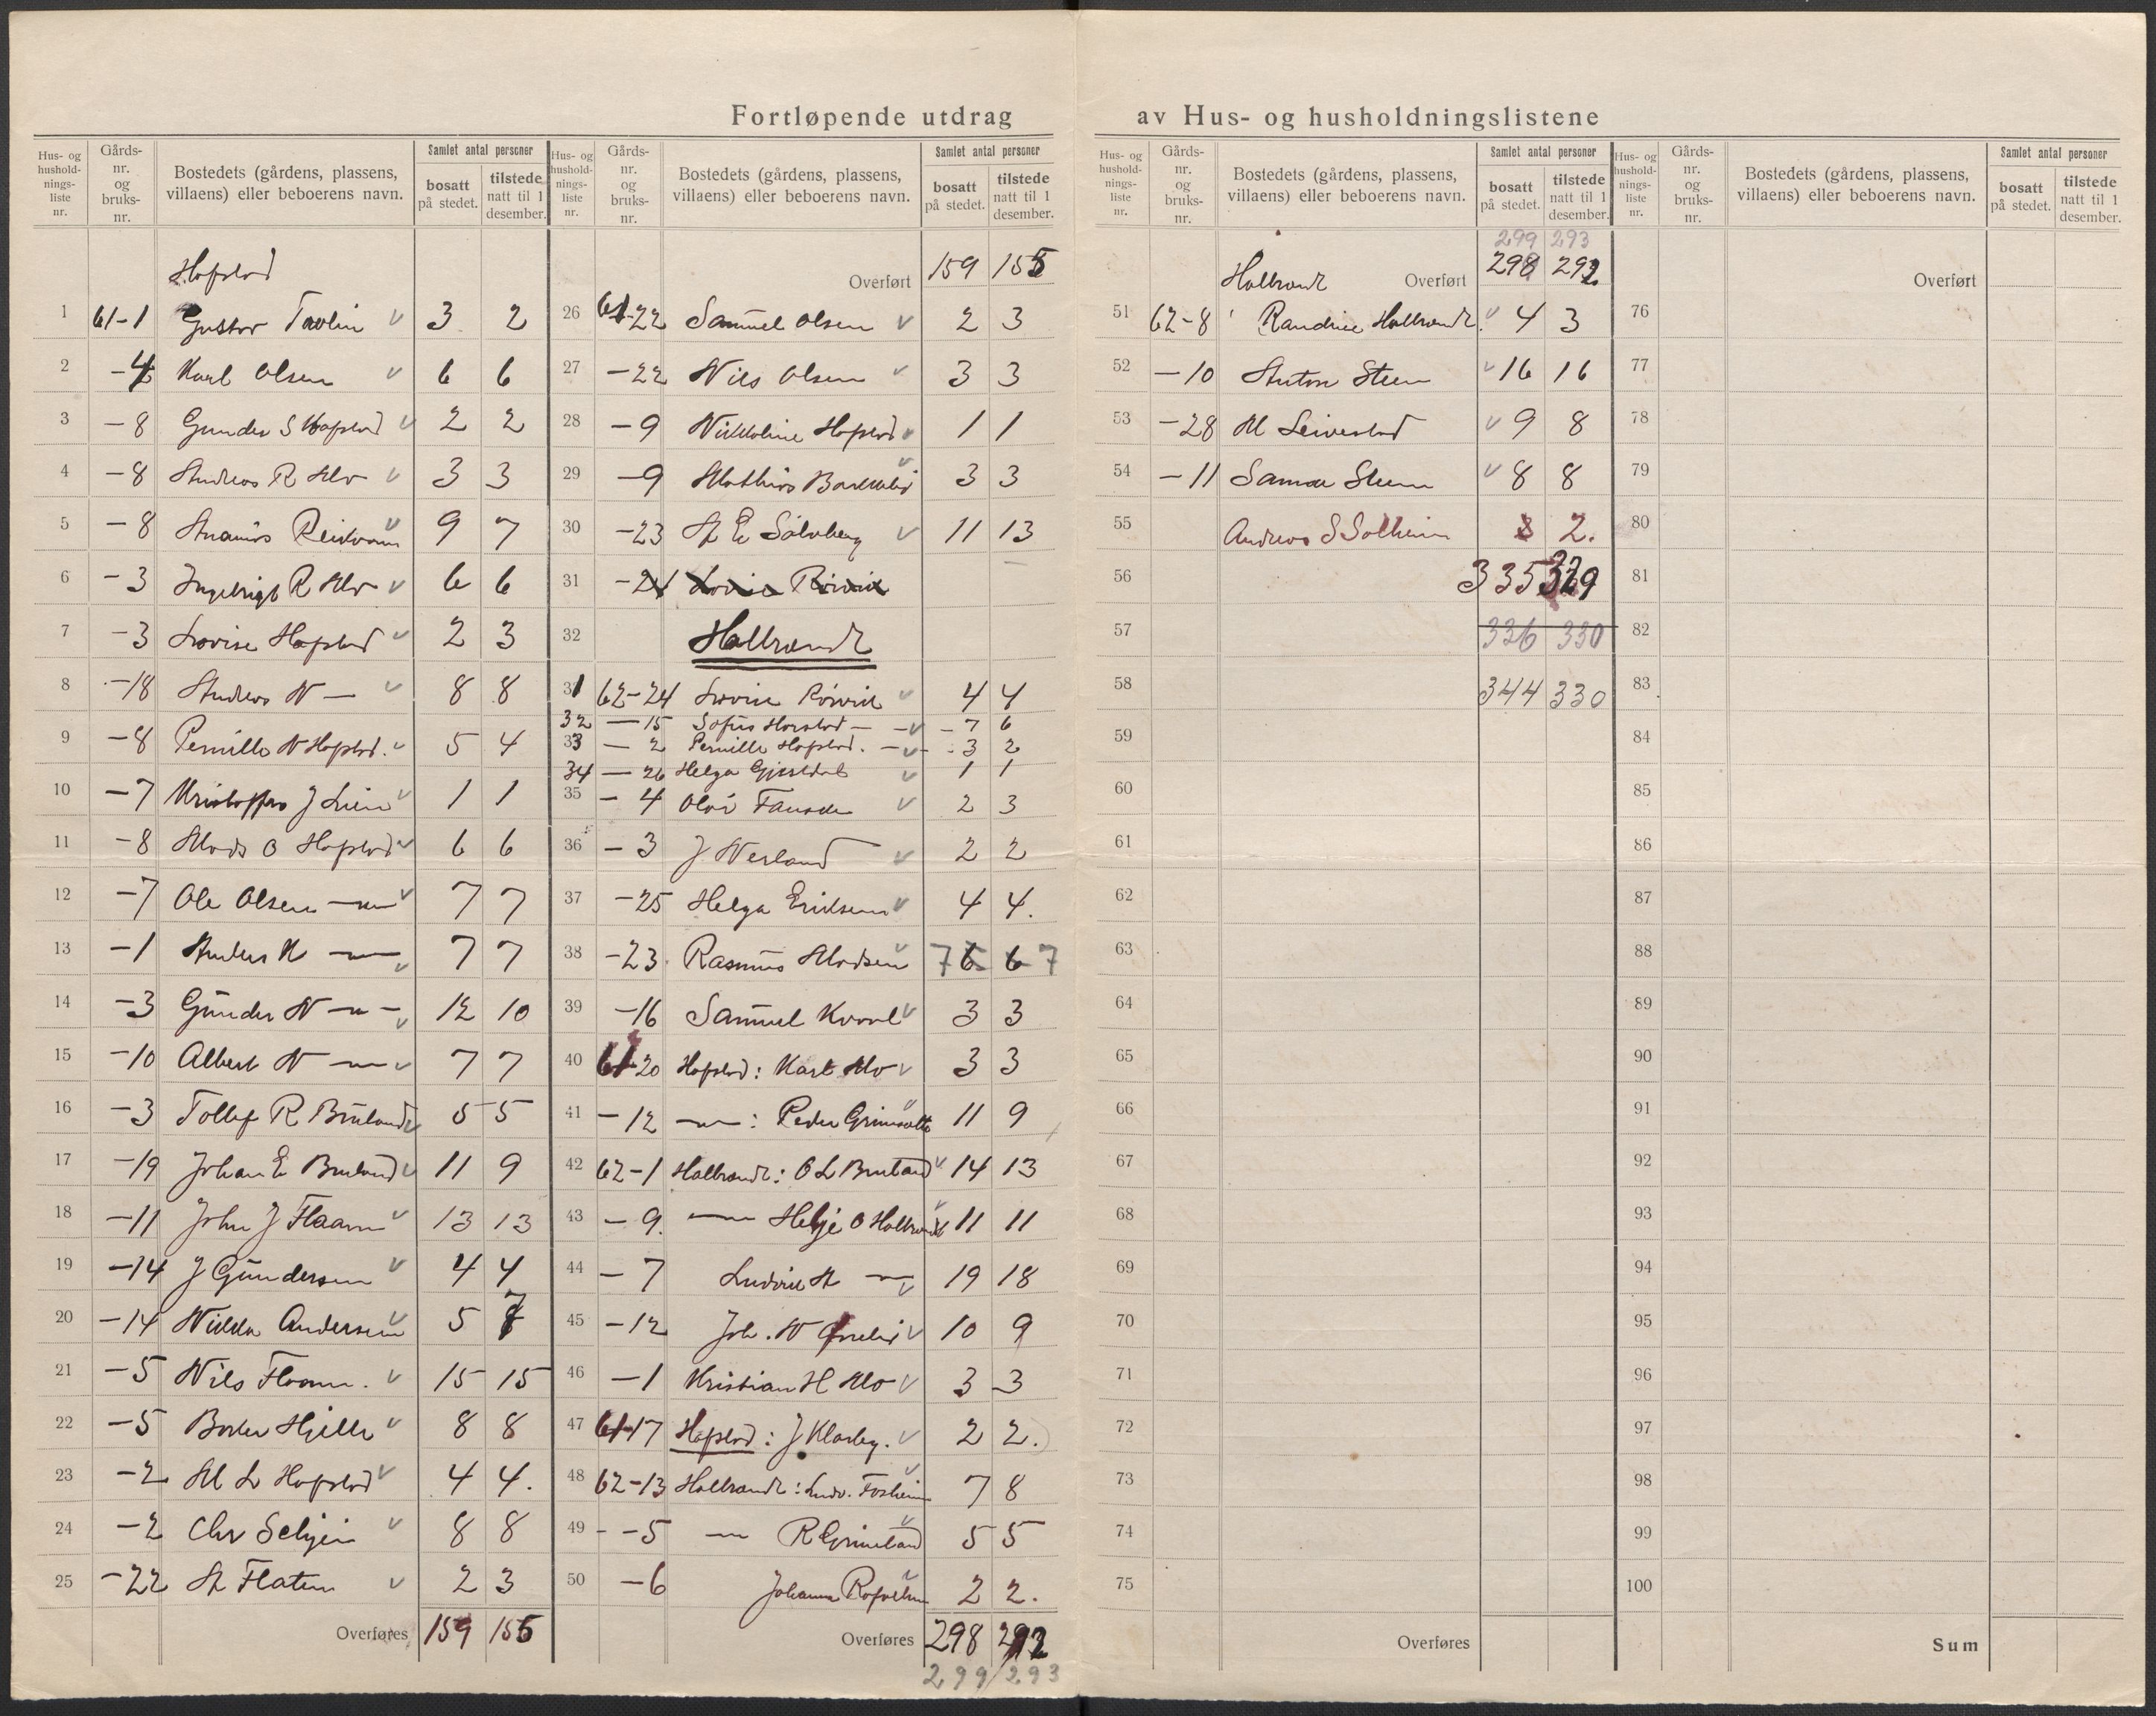 Fortløpende utdrag av Hus- og husholdningslistene
Hus- og husholdnings-liste nr. Gårds-nr. og bruks-nr. Bostedets (gårdens, plassens, villaens) eller beboerens navn. Samlet antal personer bosatt på stedet. tilstede natt til 1 desember.
Hopstad
1 61-1 Gustav 3 2
2 -4 Karl Olsen 6 6
3 -8 Gunder S Hopstad 2 2
4 -8 Andreas R Mo 3 3
5 -8 9 7
6 -3 Ingebrigt R Mo 6 6
7 -3 Lovise Hopstad 2 3
8 -18 Andreas N — 8 8
9 -8 Pernille N Hopstad. 5 4
10 -7 J Lien 1 1
11 -8 Mads O Hopstad 6 6
12 -7 Ole Olsen —"— 7 7
13 -1 Anders N —"— 7 7
14 -3 Gunder N —"— 12 10
15 -10 Albert N —"— 7 7
16 -3 Tollef R Bruland 5 5
17 -19 Johan E Bruland 11 9
18 -11 John J Flaam 13 13
19 -14 J Gundersen 4 4
20 -14 Nikka Andersen 5 7
21 -5 Nils Flaam. 15 15
22 -5 Hjelle 8 8
23 -2 M L Hopstad 4 4.
24 -2 Chr Seljeir 8 8
25 -22 A Flaten 2 3
Overføres 159 155
Hus- og husholdnings-liste nr. Gårds-nr. og bruks-nr. Bostedets (gårdens, plassens, villaens) eller beboerens navn. Samlet antal personer bosatt på stedet. tilstede natt til 1 desember.
Overført 159 155
26 61-22 Samuel Olsen 2 3
27 -22 Nils Olsen 3 3
28 -9 Nikkoline Hopstad 1 1
29 -9 Mathias 3 3
30 -23 A E Solvberg 11 13
31 -24 Lovise Rörvik
32 Halbrendt
31 62-24 Lovise Rörvik 4 4
32 — 15 Sofus Horstad — 7 6
33 — 2 Pernille Hopstad. — 3 2
34 — 26 Helga Gjesdal 1 1
35 - 4 Olai 2 3
36 - 3 J. Nesland 2 2
37 -25 Helga Eriksen 4 4.
38 -23 Rasmus Madsen 7 6 6 7
39 -16 Samuel Kvaal 3 3
40 61-20 Hopstad: Karl Mo 3 3
41 -12 —"—: Peder Grimsøtte 11 9
42 62-1 Halbrendt: O L Bruland 14 13
43 - 9. —"— Helje O Halbrendt 11 11
44 - 7 Ludvik A —"— 19 18
45 -12 Joh. N 10 9
46 -1 Kristian H Mo 3 3
47 61-17 Hopstad: J Klarby. 2 2.
48 62-13 Halbrendt: Ludv. Fosheim 7 8
49 -5 —"— R Grimeland 5 5
50 -6 Johanna 2 2.
Overføres 298 292
299/293
Hus- og husholdnings-liste nr. Gårds-nr. og bruks-nr. Bostedets (gårdens, plassens, villaens) eller beboerens navn. Samlet antal personer bosatt på stedet. tilstede natt til 1 desember.
299 293
Halbrendt Overført 298 292
51 62-8 Randine Halbrendt. 4 3
52 -10 Anton Steen 16 16
53 -28 M Leivestad 9 8
54 -11 Samson Steen 8 8
55 Andreas S Solheim 2.
56 335 329
57 336 330
58 344 330
59
60
61
62
63
64
65
66
67
68
69
70
71
72
73
74
75
Overføres
Hus- og husholdnings-liste nr. Gårds-nr. og bruks-nr. Bostedets (gårdens, plassens, villaens) eller beboerens navn. Samlet antal personer bosatt på stedet. tilstede natt til 1 desember.
Overført
76
77
78
79
80
81
82
83
84
85
86
87
88
89
90
91
92
93
94
95
96
97
98
99
100
Sum